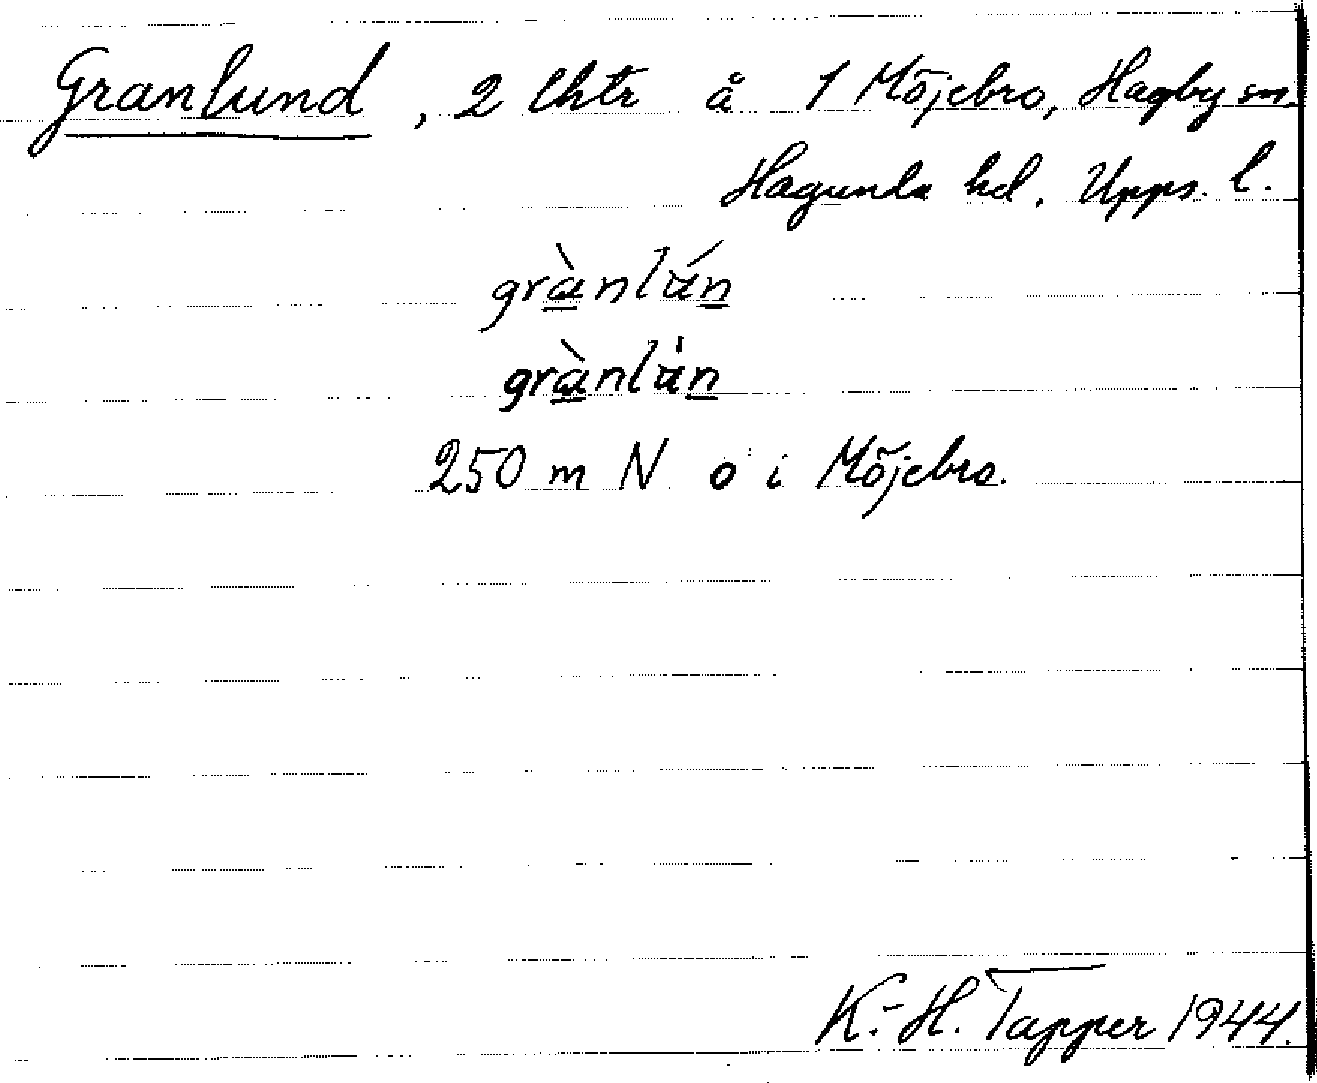 Granlund, 2 lhtr å 1 Möjebro, Hagby sn.
Hagunda hd. Upps. l.
grànlún
grànlu̍n
250 m N o i Möjebro.
K.-H. Tapper 1944.